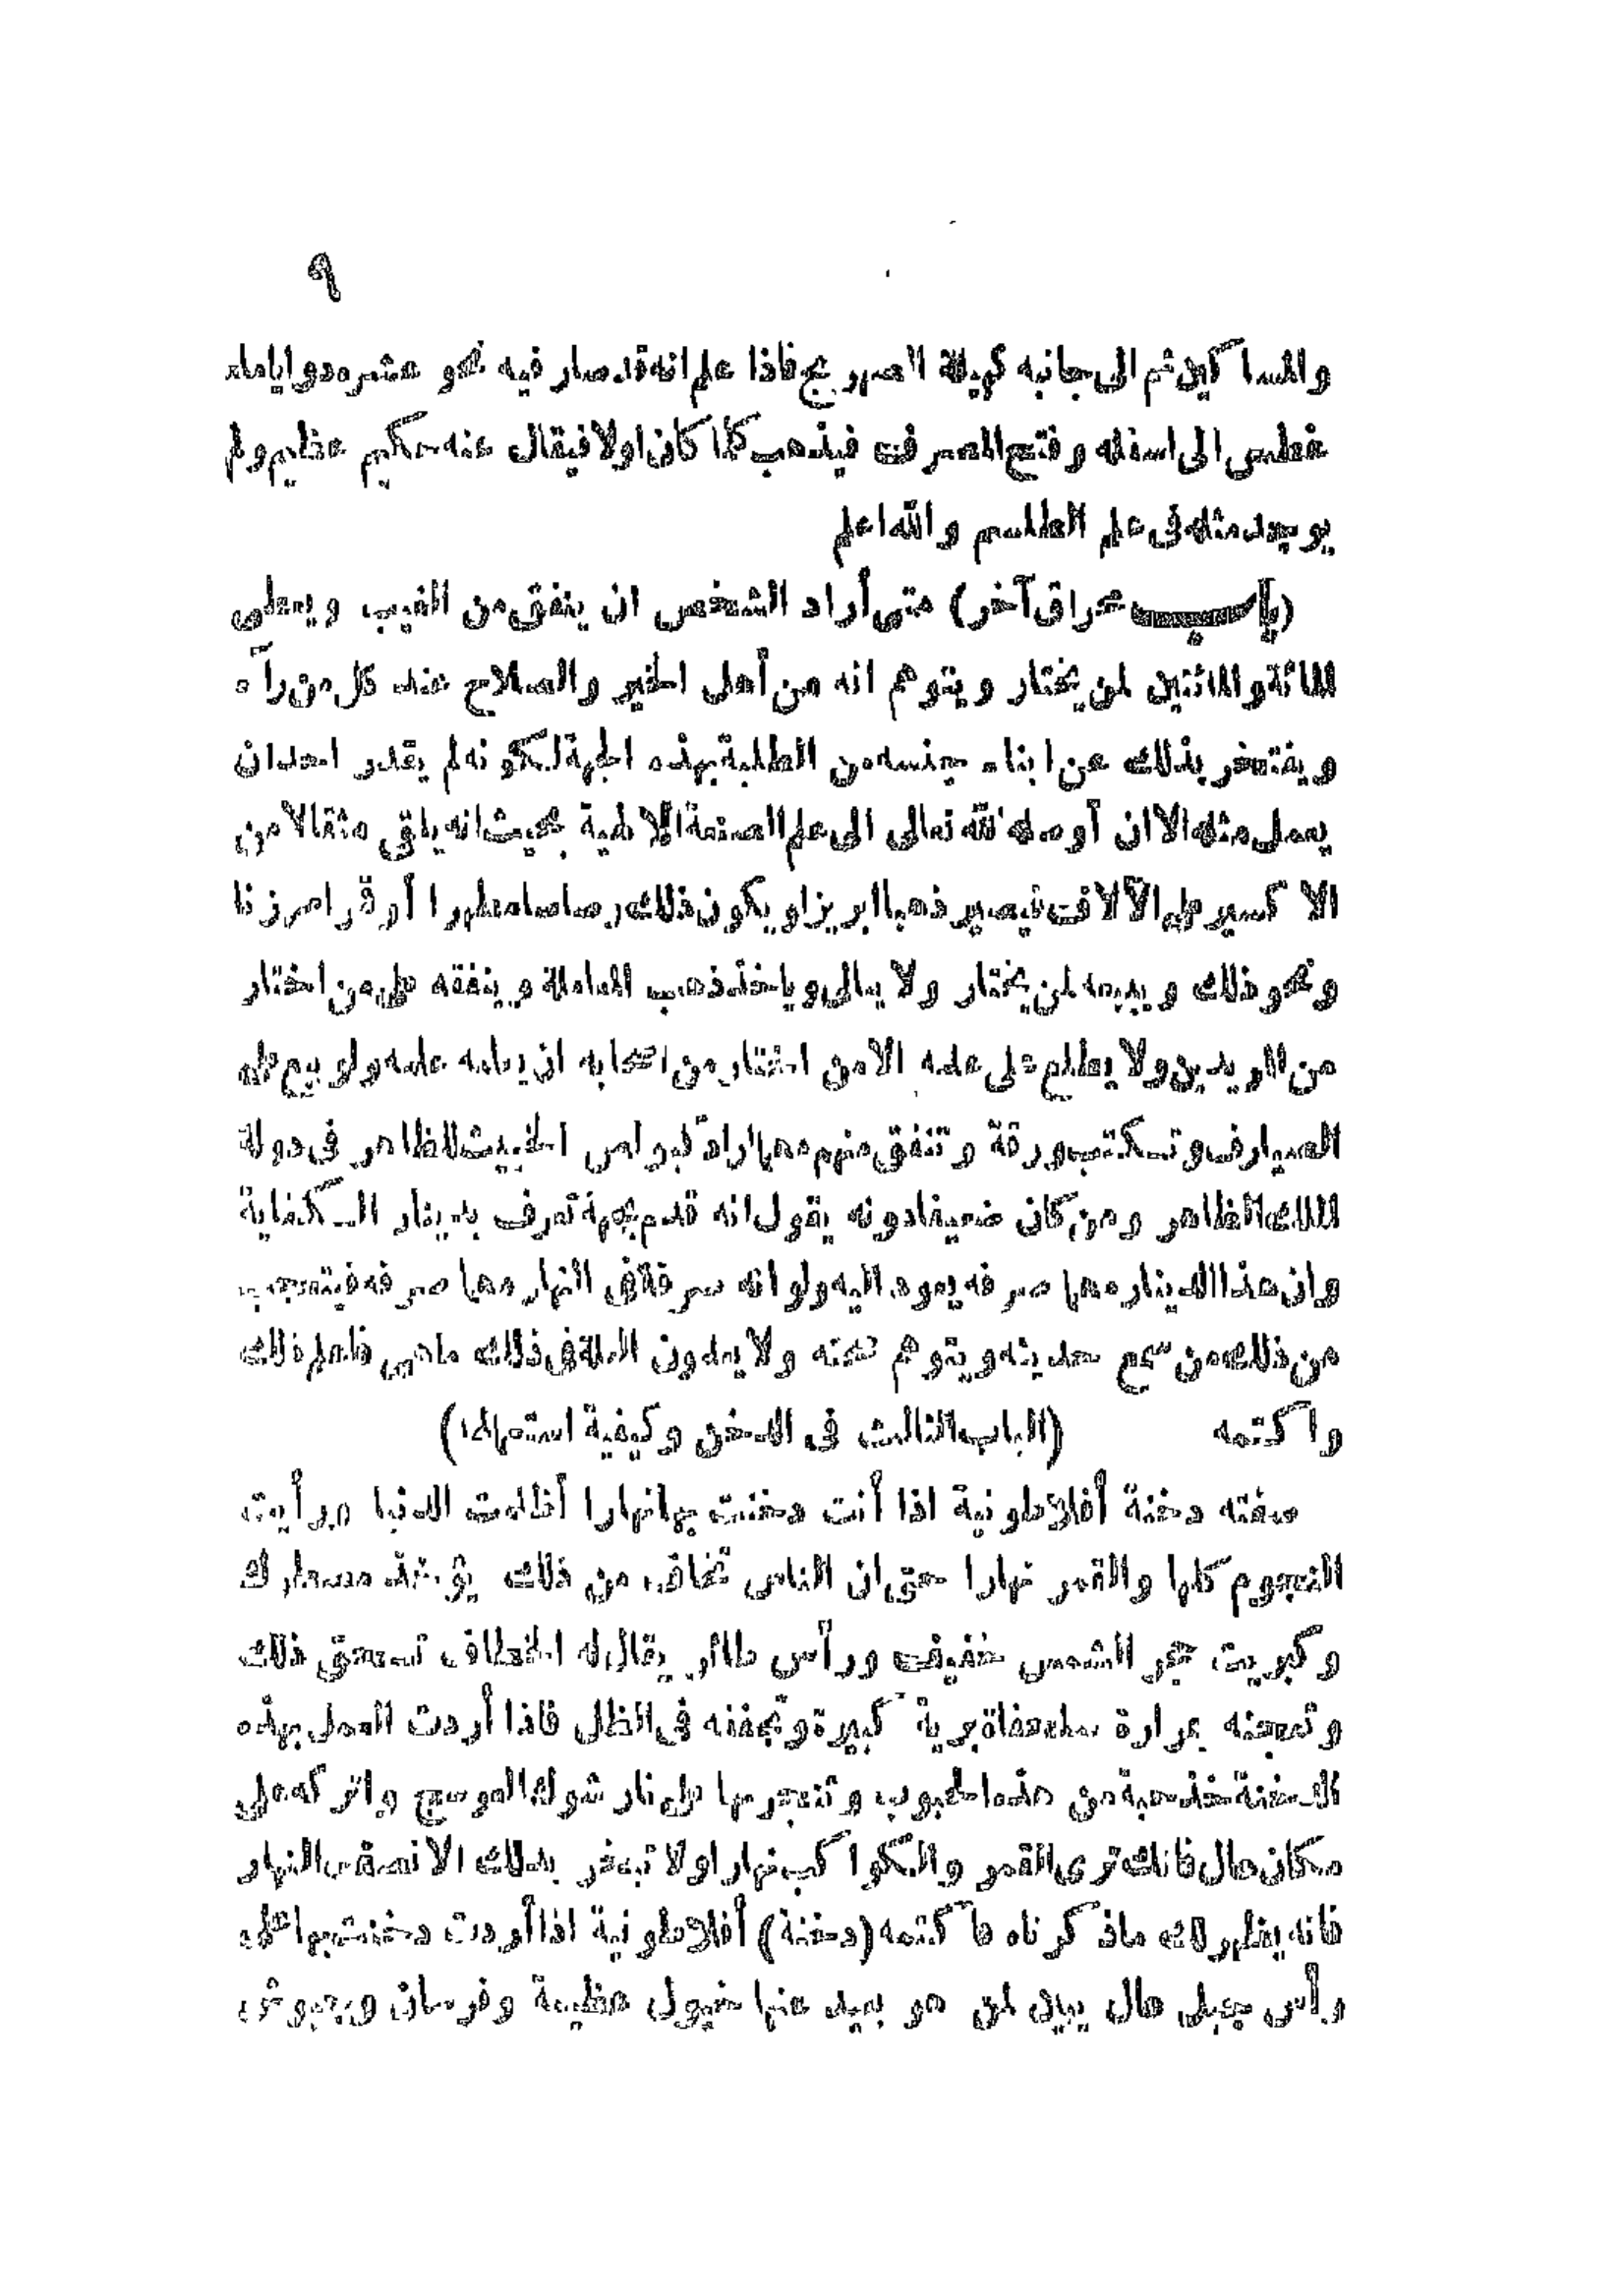 ٩
والمسا كين ثم الى جانبه كهيئة الصهريج فاذا علم انه قد صار فيه نحو عشره دوايا ماء
غطس الى اسفله وفتح المصرف فيذهب كلما كان اولا فيقال عنه حكيم عظيم ولم
يوجد مثله فى علم الطلسم والله اعلم
(باب محراق آخر) متى أراد الشخص ان ينفق من الغيب ويعطى
المائة والمائتين لمن يختار ويتوهم انه من أهل الخير والصلاح عند كل من رآه
ويفتخر بذلك عن ابناء جنسه من الطلبة بهذه الجهة لكونه لم يقدر احد ان
يعمل مثله الا ان أوصله الله تعالى الى علم الصنعة الالاهية بحيث انه يلقى مثقالا من
الا كسير على الآلاف فيصير ذهبا ابريزا ويكون ذلك رصاصا مطهرا أو قمرا مرزنا
ونحو ذلك ويبيعه لمن يختار ولا يبالى وياخذ ذهب المعاملة وينفقه على من اختار
من المريدين ولا يطلع على علمه الا من اختار من اصحابه ان يعلمه علمه ولو بيع على
الصيارف وتكتب ورقة وتنفق منهم مهما اراد كبولص الخبيث الظاهر فى دولة
الملك الظاهر ومن كان ضعيفا دونه يقول انه قد م بجهة تعرف بدينار الكفاية
وان هذا الدينار مهما صرفه يعود اليه ولو انه صرفه فى النهار مهما صرفه فيتعجب
من ذلك من سمع حديثه ويتوهم صحته ولا يعلمون العلة فى ذلك ماهى فاعلم ذلك
وا كتمه (الباب الثالث فى الدخن وكيفية استعمالها)
صفته دخنة أفلاطونية اذا أنت دخنت بها نهارا أظلمت الدنيا ورأيت
النجوم كلها والقمر نهارا حتى ان الناس تخاف من ذلك يؤخذ
وكبريت حجر الشمس خفيف ورأس طائر يقال له الخطاف تسحق ذلك
وتعجنه بمرارة سلحفاة برية كبيرة وتجففه فى الظل فاذا أردت العمل بهذه
الدخنة فخذ حبة من هذه الحبوب وتبخر بها على نار شوك العوسج واتركه على
مكان عال فانك ترى القمر والكوا كب نهارا ولا تبخر بذلك الا نصف النهار
فانه يظهر لك ماذ كرناه فا كتمه (دخنة) أفلاطونية اذا أردت دخنت بها على
رأس جبل عال يبين لمن هو بعيد عنها خيول عظيمة وفرسان وجيوش